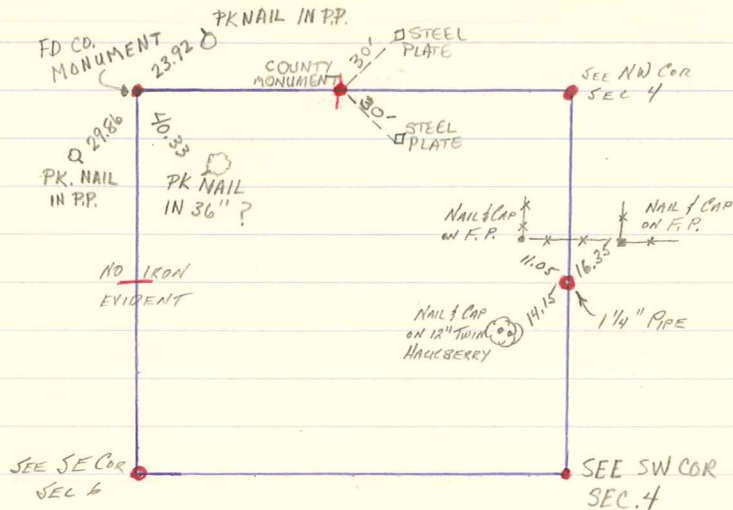 PK NAIL IN P.P.
FD CO.
MONUMENT
23.92
COUNTY
MONUMENT
30'
STEEL
PLATE
30'
STEEL
PLATE
SEE NW COR
SEC 4
29.86
PK. NAIL
IN P.P.
40.33
PK NAIL
IN 36" ?
NAIL & CAP
ON F.P.
NAIL & CAP
ON F.P.
11.05
16.35
NO IRON
EVIDENT
NAIL & CAP
ON 12" TWIN
HACKBERRY
14.15
1 1/4" PIPE
SEE SE COR
SEC 6
SEE SW COR
SEC. 4